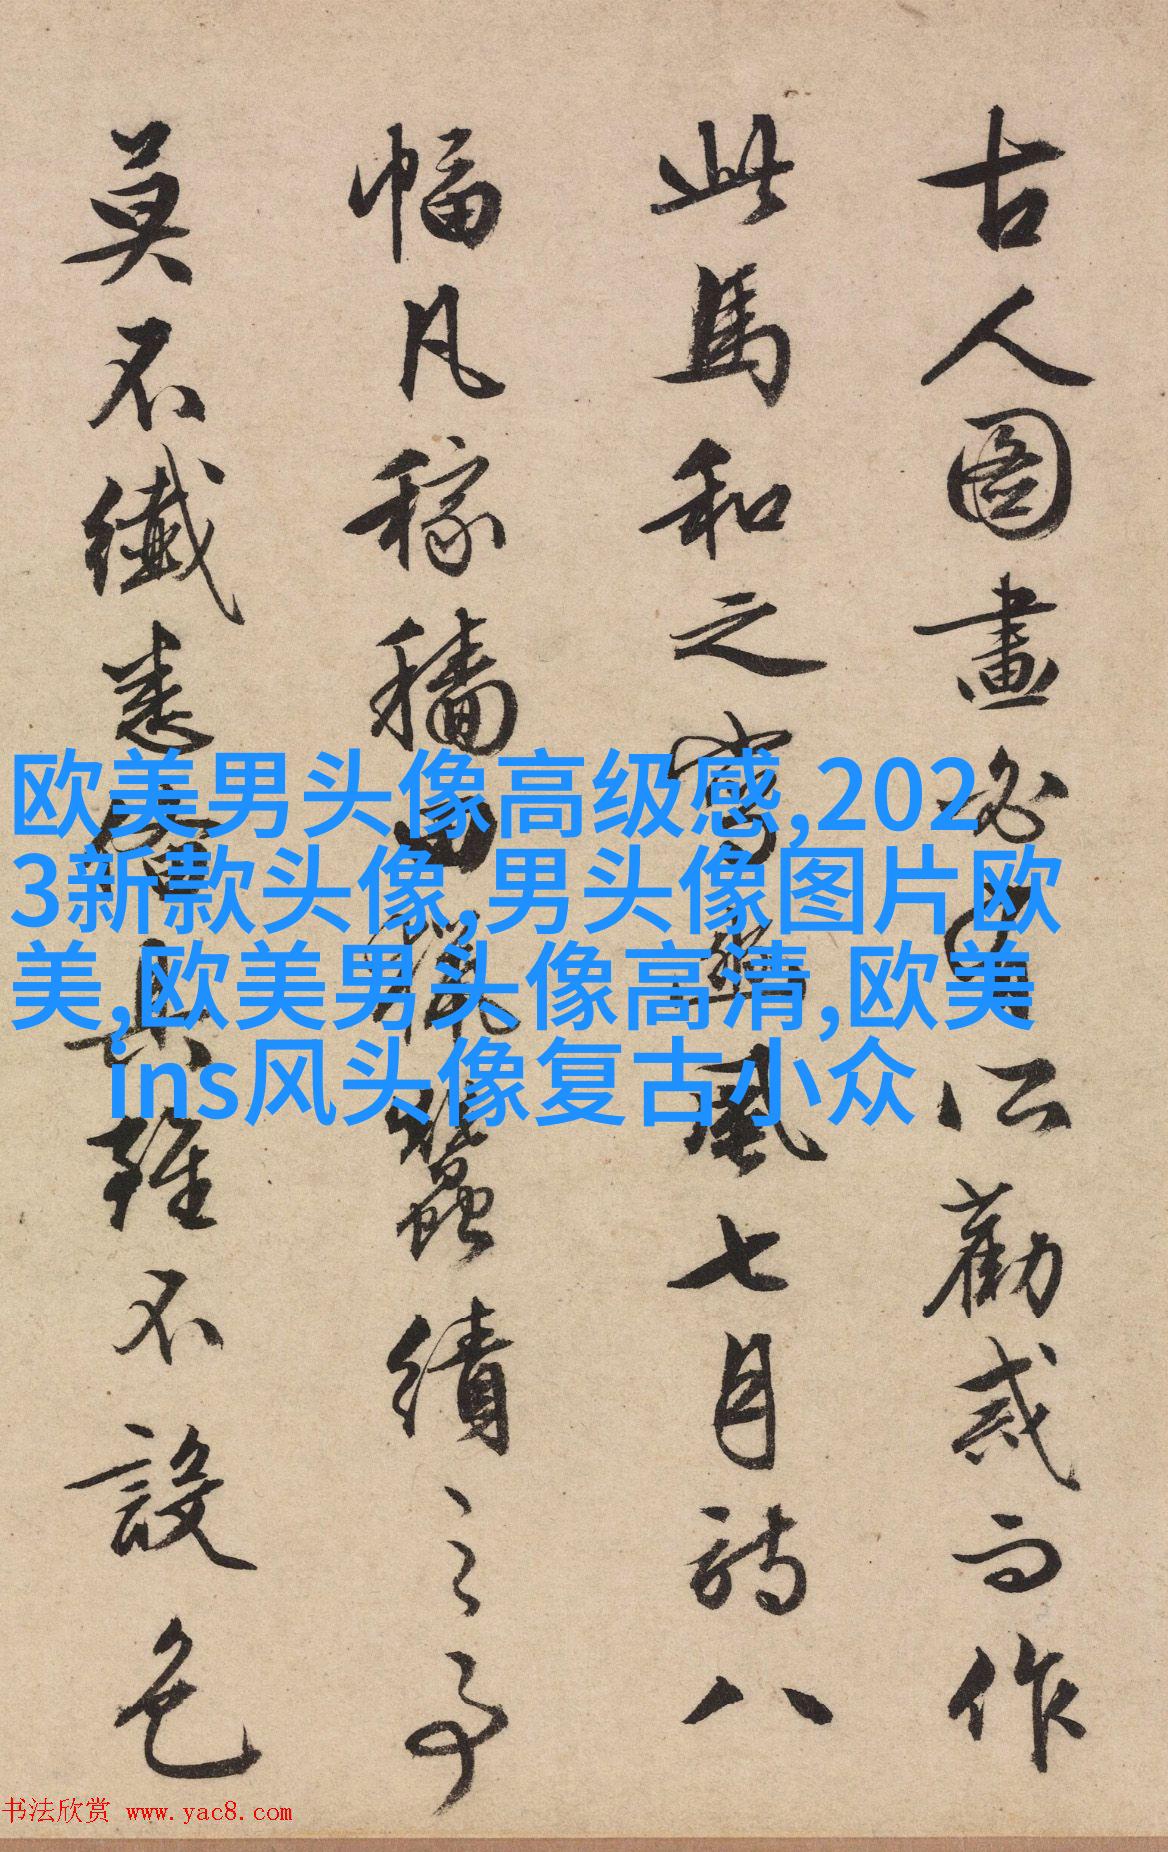 古人圖畫必有所勸戒而作
此馬和之寫豳風七月詩八
幅凡稼穡田獵蠶績之事
莫不纖悉備具雖不設色
欧美男头像高级感,202
3新款头像,男头像图片欧
美,欧美男头像高清,欧美
ins风头像复古小众
书法欣赏 www.yac8.com